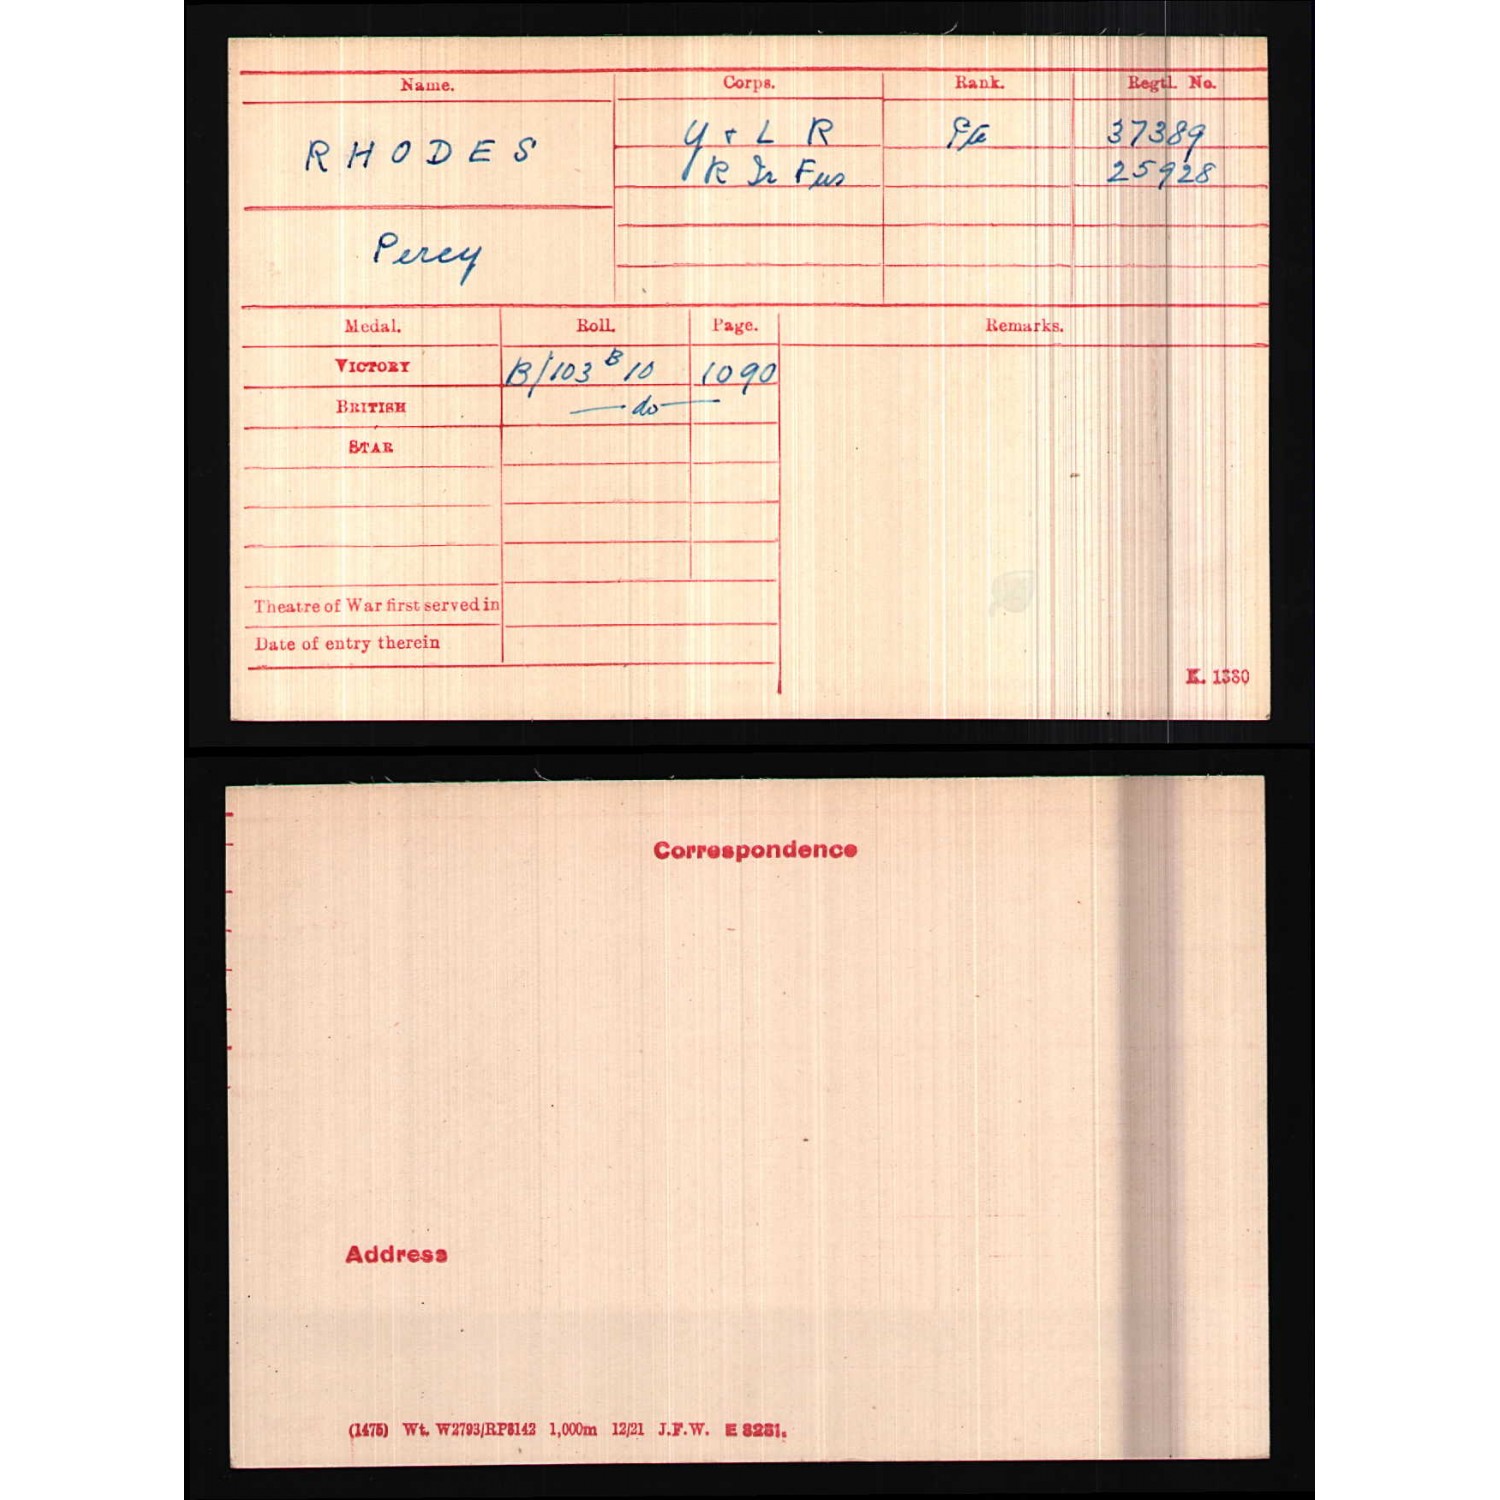 Name. Corps. Rank. Regtl. No.
RHODES Y + L R Pte 37389
R Ir Fus 25928
Percy
Medal. Roll. Page. Remarks.
VICTORY B/103 B 10 1090
BRITISH — do —
STAR
Theatre of War first served in
Date of entry therein
K. 1380
Correspondence
Address
(1475) Wt. W2793/RP8142 1,000m 12/21 J.F.W. E 8281.